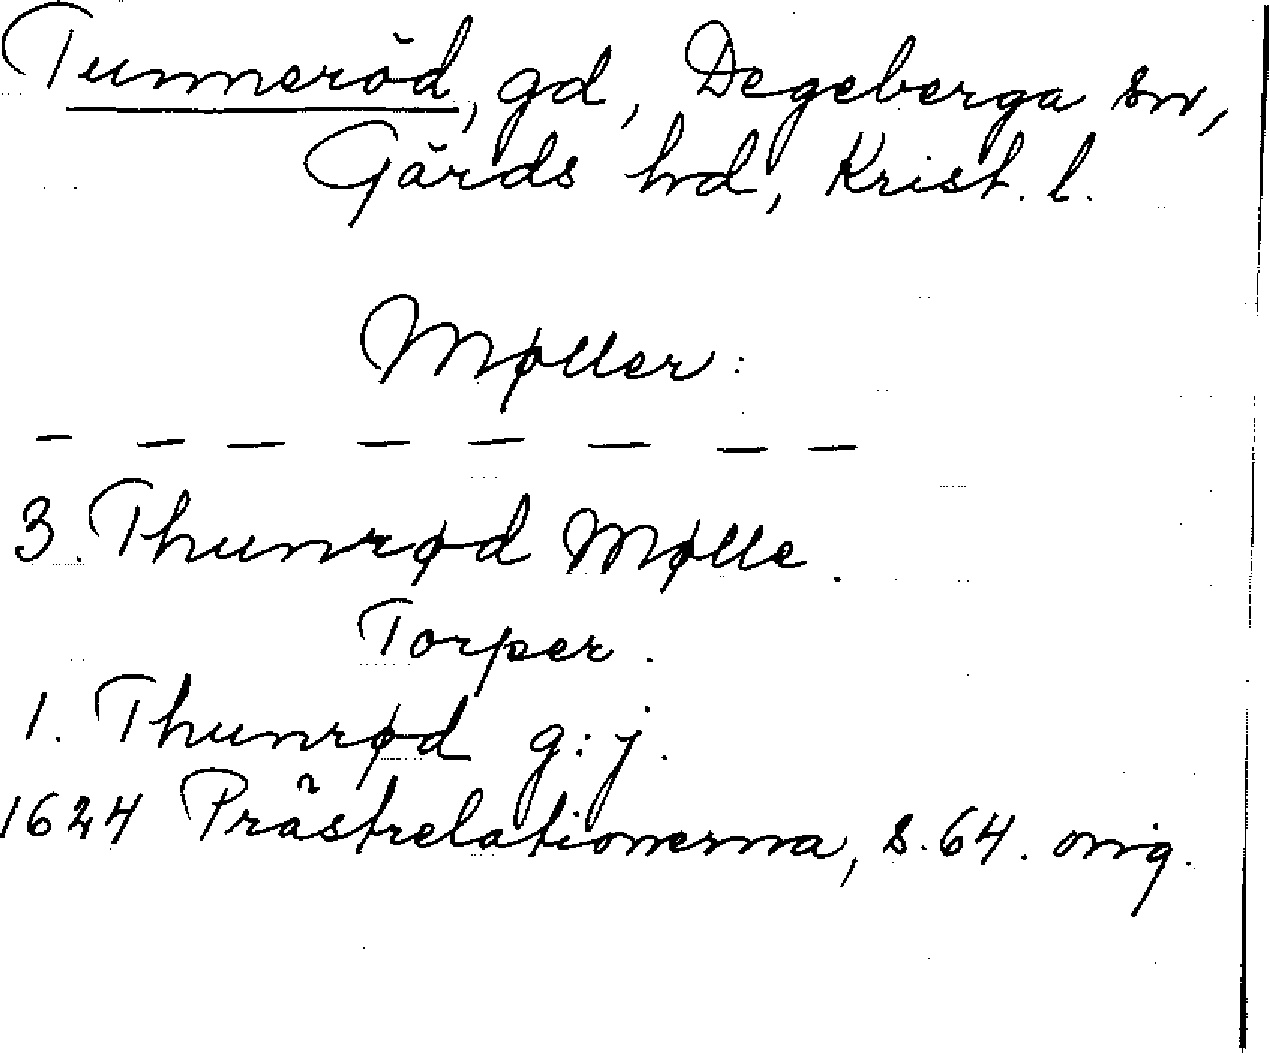 Tunneröd, gd, Degeberga sn,
Gärds hd, Krist. l.
Møller:
- - - - - - - -
3. Thunrød Mølle.
Torper.
1. Thunrød g:j.
1624 Prästrelationerna, s. 64. orig.